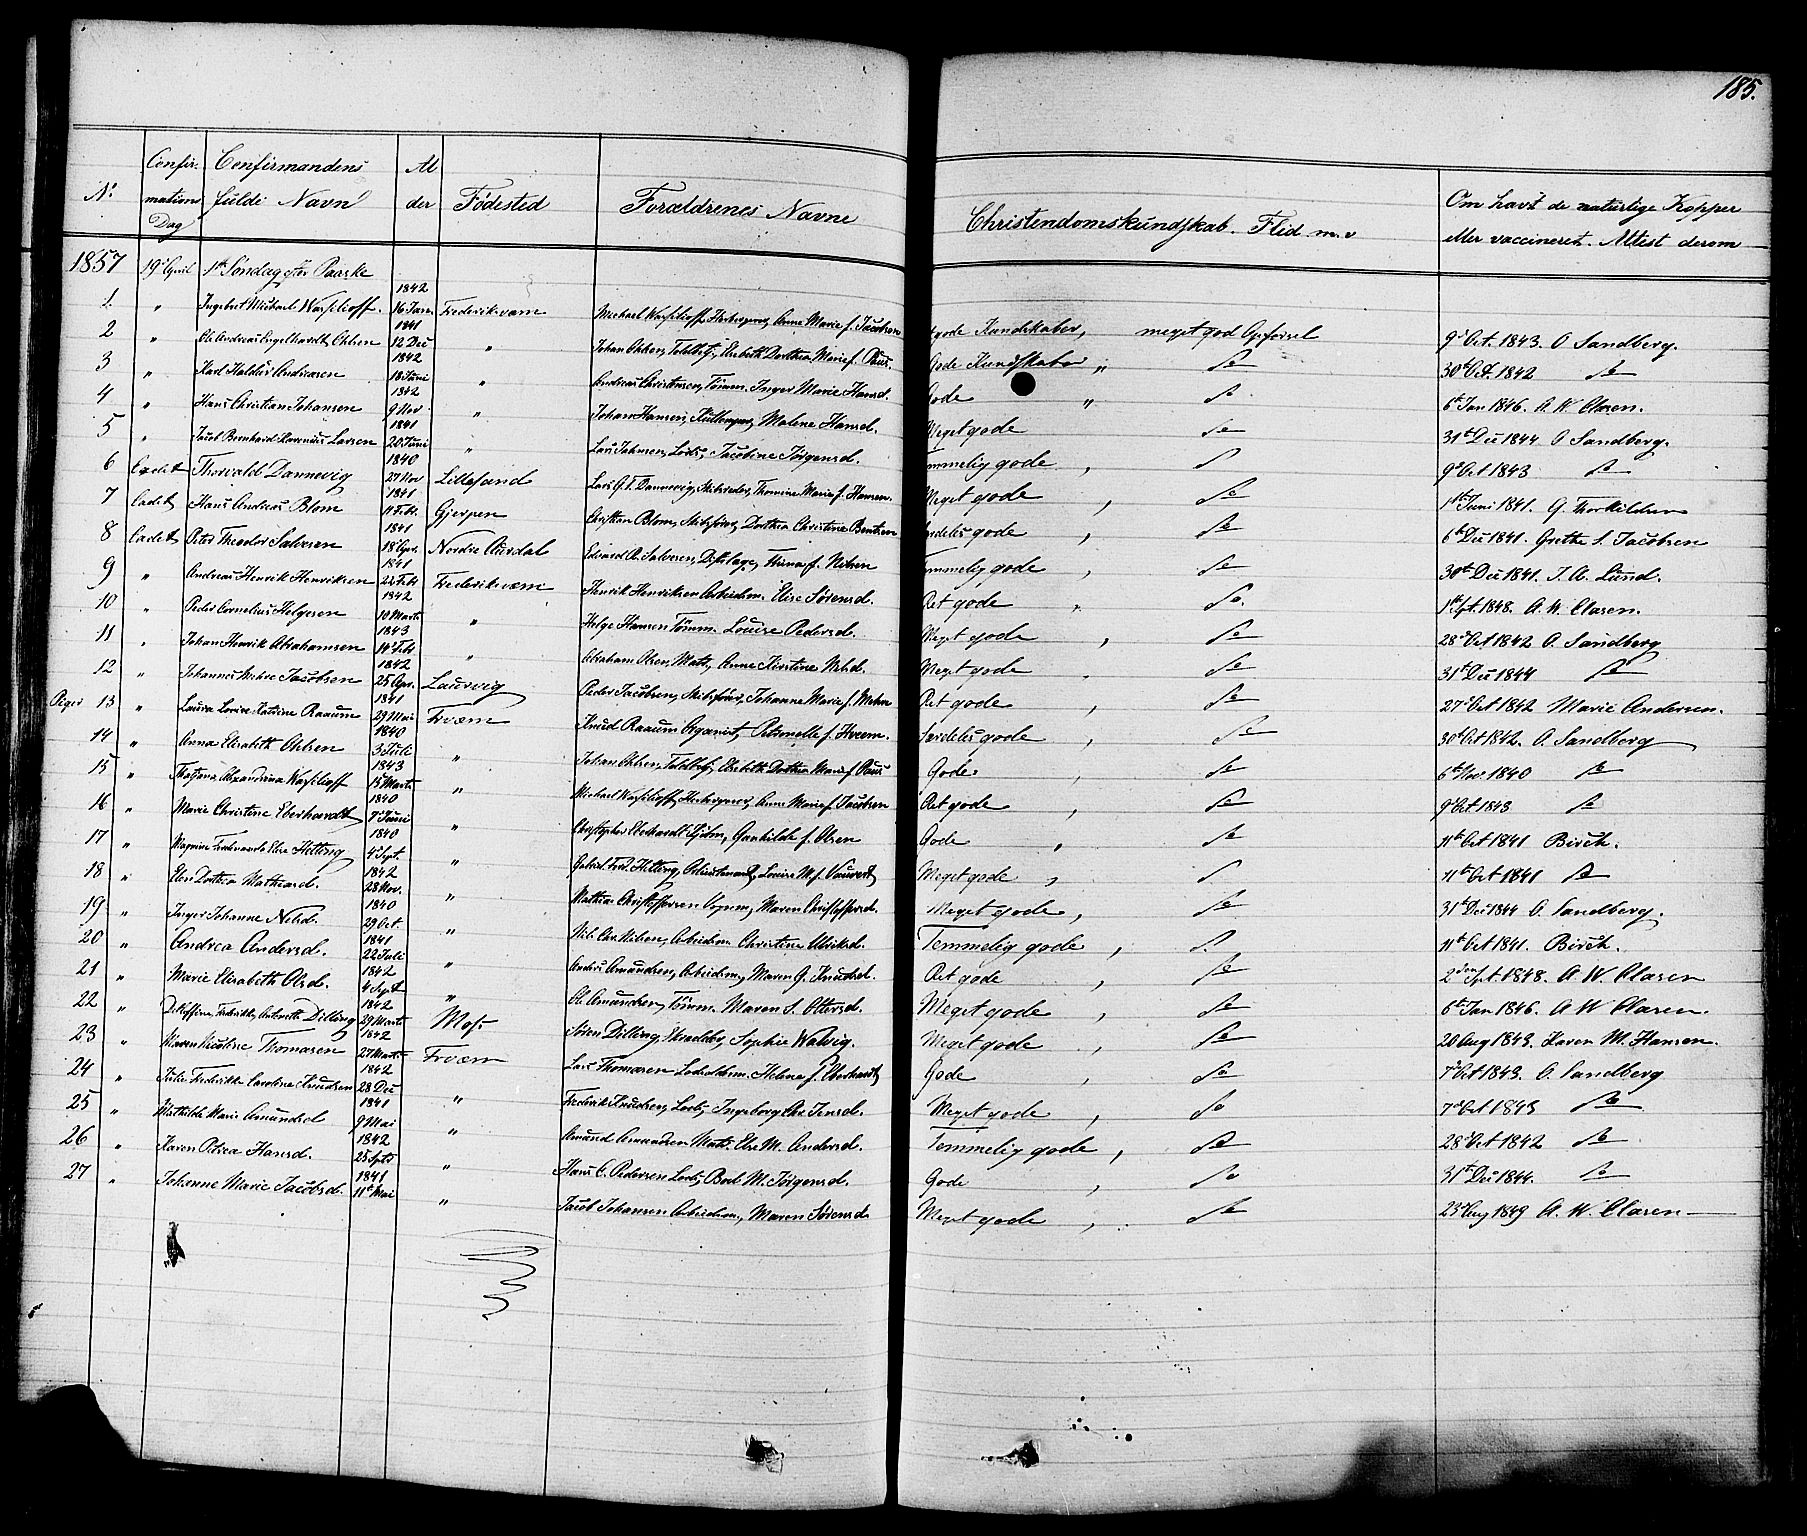 185.
No Confirmations Dag Confirmandens fulde Navn Alder Fødested Forældrenes Navne Christendomskundskab. Flid m.v Om havt de naturlige Kopper eller vaccineret. Attest derom
1857 19de April 1ste Søndag efter Paaske
1 " Ingebret Michael Wasilioff. 1842 16 Jan. Frederiksværn Michael Wasilioff, Anne Marie f. Jacobsen gode Kundskaber, meget god Opførsel 9de Oct. 1843. O Sandberg.
2 " Ole Andreas Engelhardt Ohlsen 1841 12 Dec " Johan Ohlsen, Toldbetj., Elisabeth Dorthea Marie f. Gode Kundskaber " do 30te Oct. 1842 do
3 " Karl Haldus Andreasen 1842 18 Juni " Andreas Christensen, Tømm. Inger Marie Hansd. Gode " do 6te Jan 1846. A. W. Clasen.
4 " Hans Christian Johansen 1842 9 Nov " Johan Hansen, Malene Hansd. Meget gode do 31te Dec 1844. O Sandberg.
5 " Jacob Bernhard Larsen 1841 20 Juni " Lars Johnsen, Lods, Jacobine Jørgensd. Temmelig gode , do 9de Oct 1843 do
6 Cadet Thorvald Dannevig 1840 27 Nov Lillesand Lars G. T. Dannevig, Skibsreder, Thomine Marie f. Hansen. Meget gode , do 1ste Juni 1841. G. Thorkildsen
7 Cadet Hans Andreas Blom 1841 11 Febr. Gjerpen Christian Blom, Skibsfører, Dorthea Christine Bentzen Særdeles gode , do 6te Dec 1841. Grethe S. Jacobsen
8 Cadet Peter Theodor Salvesen 1841 18 Apr. Nordre Aurdal Edvard R. Salvesen, f. Nielsen Temmelig gode , do 30te Dec 1841. J. A. Lund.
9 " Andreas Henrik Henriksen 1841 22 Febr Frederiksværn Henrik Henriksen Arbeidsm. Elise Sørensd. Ret gode " do. 1ste Spt. 1848. A. W. Clasen.
10 " Peder Cornelius Helgesen 1842 10 Marts " Helge Hansen Tømm. Louise Pedersd. Meget gode , do 28de Oct 1842 O. Sandberg
11 " Johan Henrik Abrahamsen 1843 14 Febr " Abraham Olsen, Matr., Anne Kirstine Nielsd. Meget gode , do 31te Dec 1844 do
12 " Johannes Jacobsen 1842 25 Apr. Laurvig Peder Jacobsen, Skibsfører, Johanne Marie f. Ret gode , do 27de Oct 1842 Marie Andersen.
Piger 13 " Laura Lovise Katrine Raaum 1841 29 Mai Frværn Knud Raaum Organist, Petronelle f. Særdeles gode , do 30te Oct 1842. O. Sandberg
14 " Anna Elisabeth Ohlsen 1840 3 Juli " Johan Ohlsen, Toldbetj, Elisabeth Dorthea Marie f. Gode. , do 6te Nov 1840 do
15 " Alexandrina Wasilioff 1843 15 Marts " Michael Wasilioff, Anne Marie f. Jacobsen Ret gode , do 9de Oct 1843 do
16 " Marie Christine Eberhardt 1840 7de Juni " Christopher Eberhardt, Gunhilde f. Olsen Gode , do 11te Oct 1841 Birch.
17 " Elise Hetting 1840 4 Sept. " Gabriel Ferd. Hetting, Louise M. f. Meget gode , do 11te Oct 1841 do
18 " Elen Dorthea Mathiasd. 1842 28 Nov. " Mathias Christoffersen Vognm., Maren Christoffersd. Meget gode , do 31te Dec 1844 O. Sandberg.
19 " Inger Johanne Nielsd. 1840 29 Oct. " Nils Chr. Nilsen, Arbeidsm. Christine Ulriksd. Temmelig gode , do. 11te Oct 1841. Birch.
20 " Andrea Andersd. 1841 22 Juli " Anders Amundsen, Arbeidsm., Maren G. Knudsd. Ret gode , do 2den Spt. 1848. A. W. Clasen
21 " Marie Elisabeth Olsd. 1842 4 Sept " Ole Amundsen, Tømm. Maren S. Ottersd. Meget gode , do 6te Jan 1846. A W Clasen.
22 " Fredrikke Antonette Dilling 1842 29 Marts Moss Søren Dilling, Skrædder, Sophie Walvig. Meget gode , do 20 Aug 1843. Karen M. Hansen.
23 " Maren Nicoline Thomasen 1842 27 Marts Frværn Lars Thomasen Lodsoldm. Helene f. Eberhardt Gode , do 7de Oct 1843. O. Sandberg
24 " Julie Fredrikke Caroline Knudsen 1842 28 Dec " Frederik Knudsen, Lods, Ingeborg Jensd. Meget gode , do 7de Oct 1843 do
25 " Mathilde Marie Amundsd 1841 9 Mai " Amund Amundsen Matr. Else M. Andersd. Temmelig gode , do 28de Oct 1842 do
26 " Karen Petrea Hansd. 1842 25 Spt " Hans C. Pedersen Lods, Berte M. Jørgensd. Gode , do 31te Dec 1844. do
27 " Johanne Marie Jacobsd. 1841 11te Mai " Jacob Johansen Arbeidsm., Maren Sørensd Meget gode , do 23de Aug 1849 A. W. Clasen